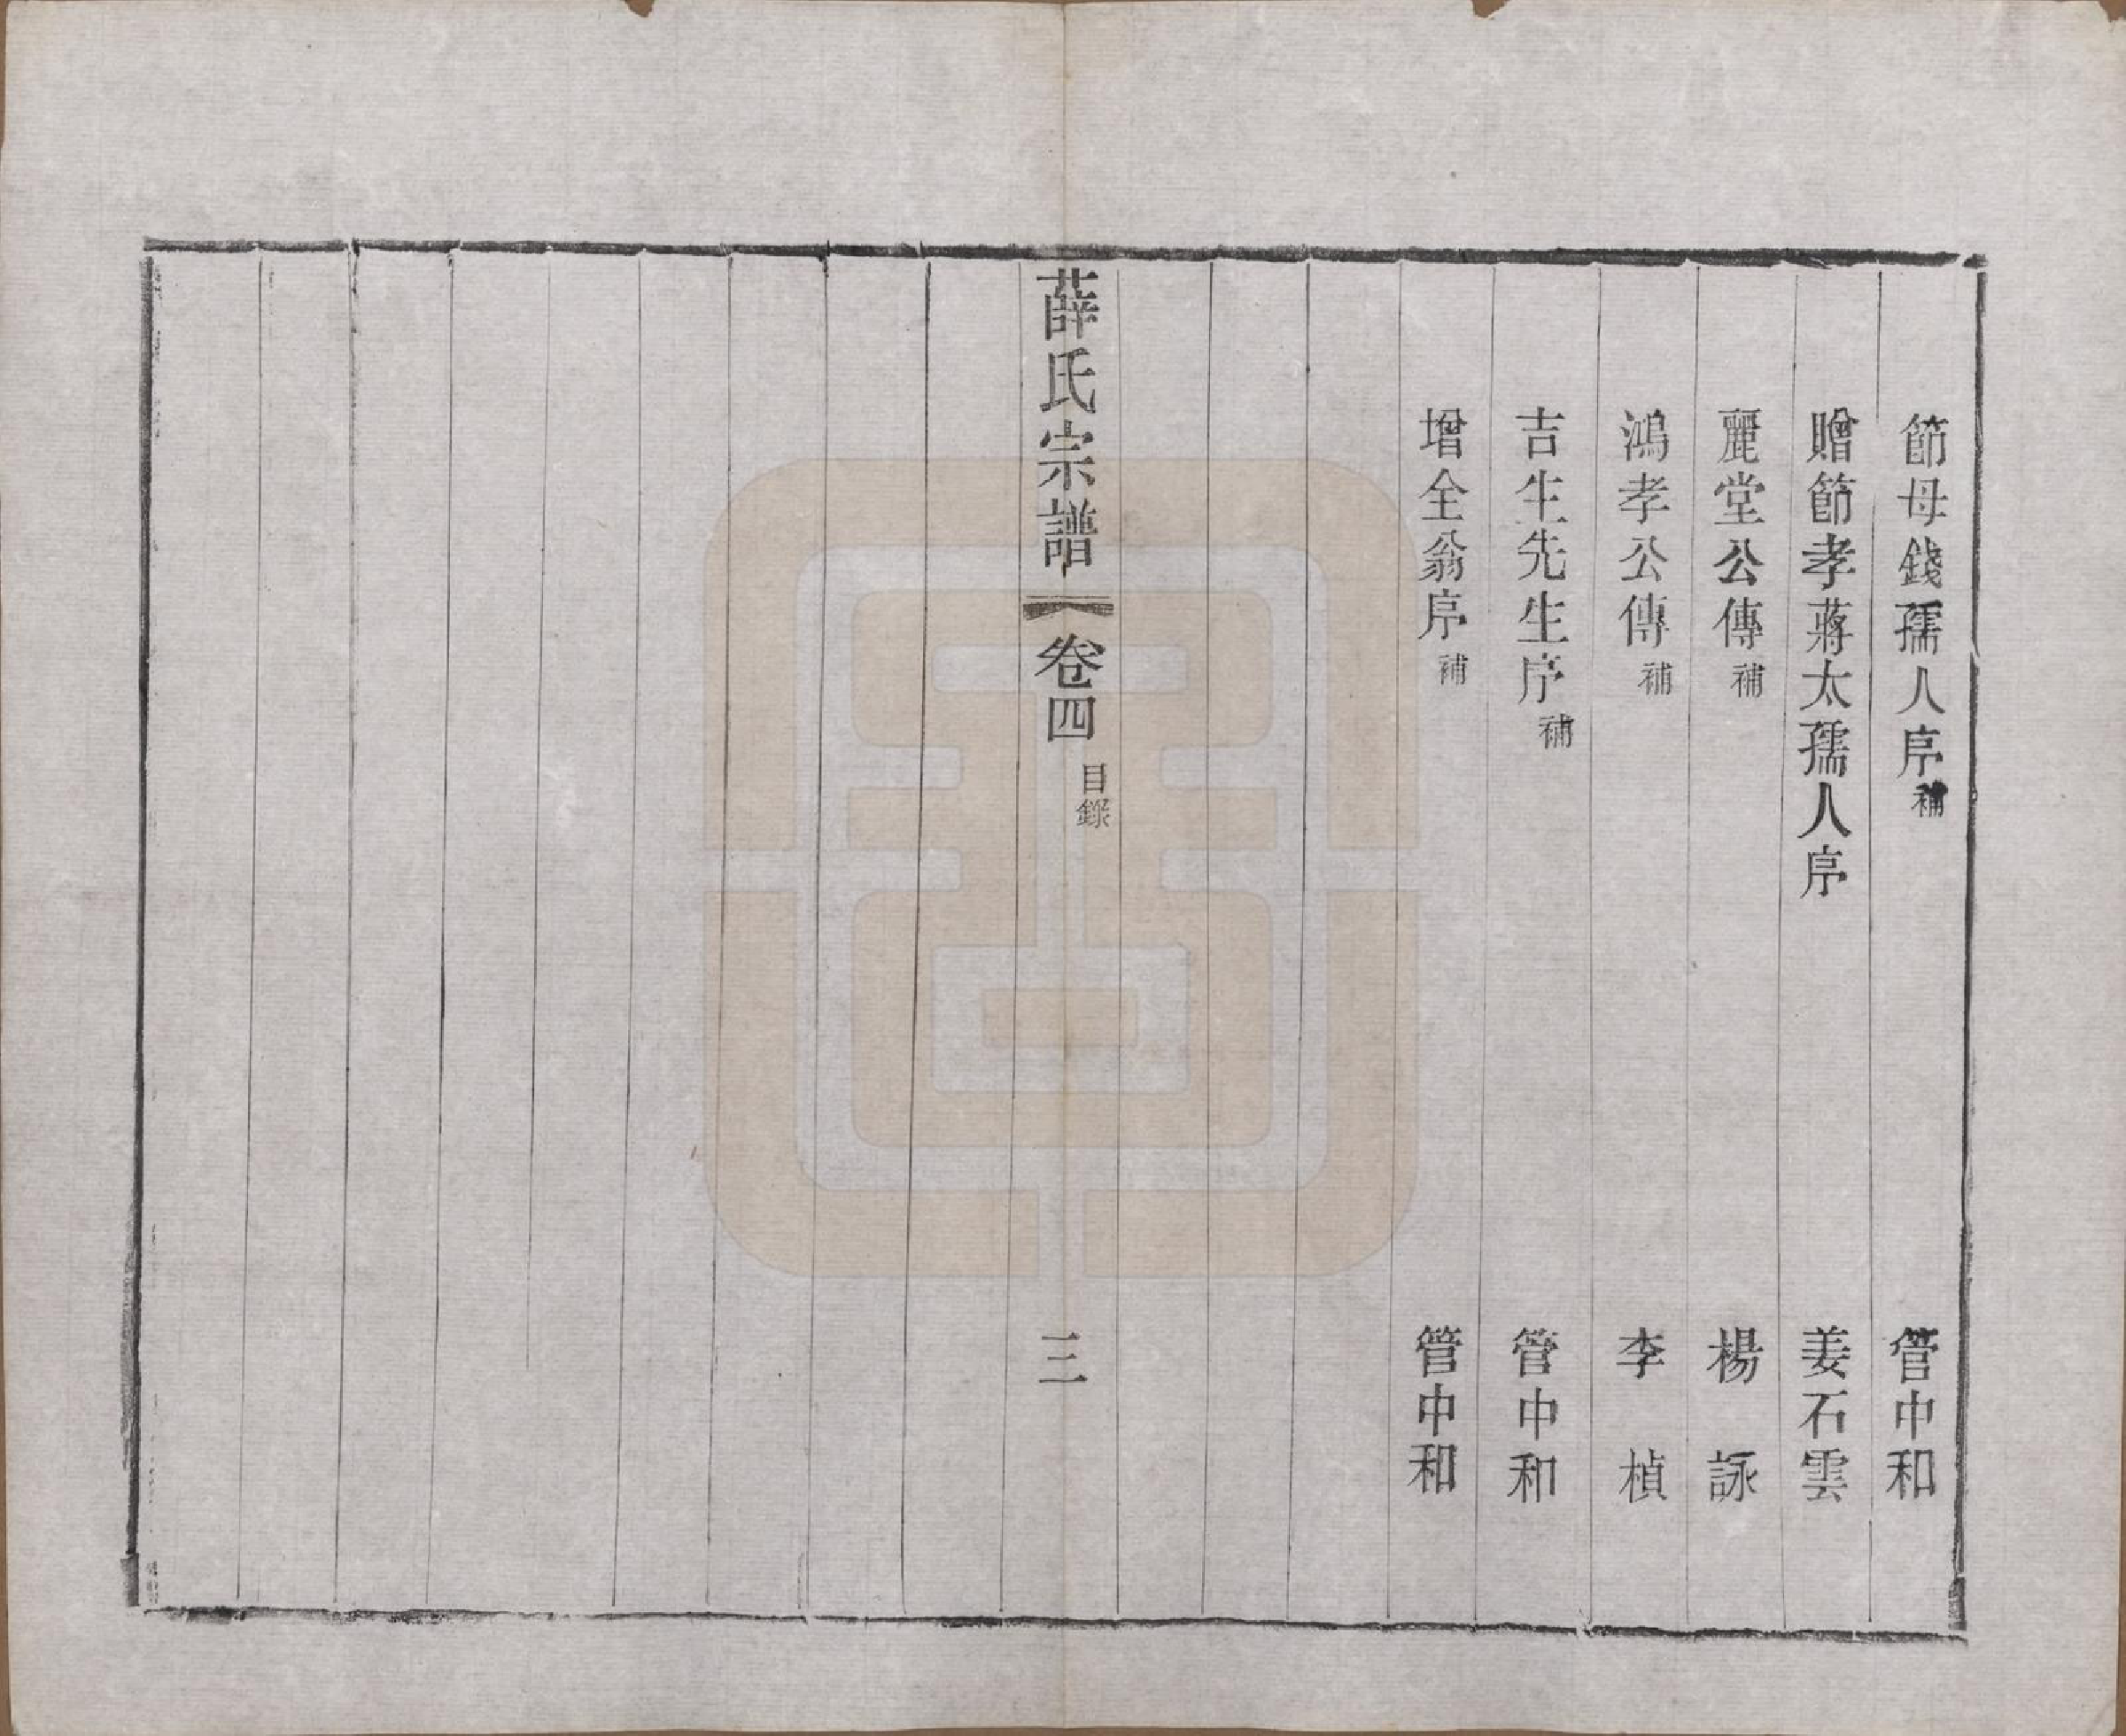 節母錢孺人序補 管中和
贈節孝蔣太孺人序 姜石雲
麗堂公傳補 楊詠
鴻孝公傳補 李楨
吉生先生序補 管中和
增全翁序補 管中和
薛氏宗譜 卷四 目錄 三